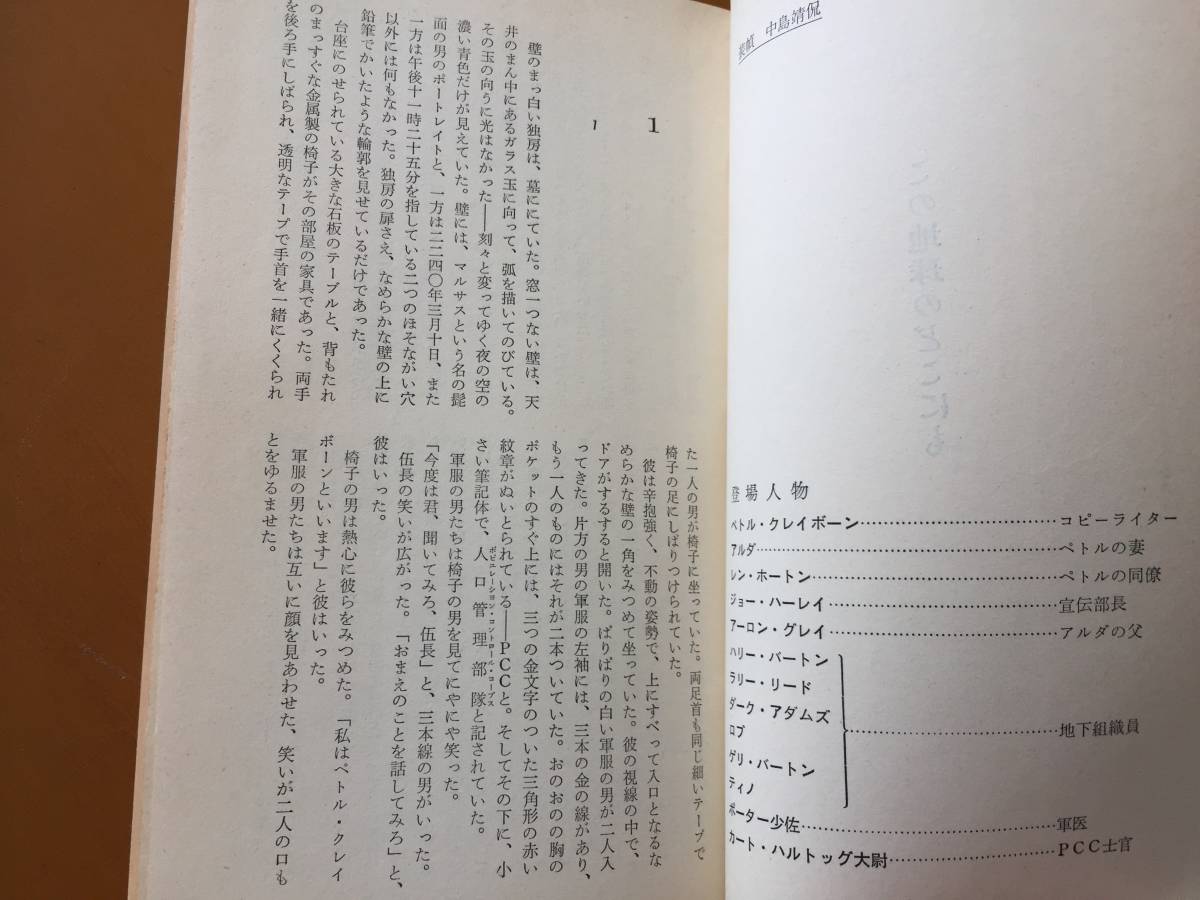 装幀 中島靖侃
この地球のどこにも
登場人物
ペトル・クレイボーン……………………………コピーライター
アルダ……………………………………………ペトルの妻
レン・ホートン……………………………………ペトルの同僚
ジョー・ハーレイ…………………………………宣伝部長
アーロン・グレイ…………………………………アルダの父
ハリー・バートン
ラリー・リード
ダーク・アダムズ
ロブ
ゲリ・バートン
ティノ
地下組織員
ポーター少佐………………………………………軍医
カート・ハルトッグ大尉…………………………PCC士官
1
1
壁のまっ白い独房は、墓ににていた。窓一つない壁は、天
井のまん中にあるガラス玉に向って、弧を描いてのびている。
その玉の向うに光はなかった――刻々と変ってゆく夜の空の
濃い青色だけが見えていた。壁には、マルサスという名の髭
面の男のポートレイトと、一方は二二四〇年三月十日、また
一方は午後十一時二十五分を指している二つのほそながい穴
以外には何もなかった。独房の扉さえ、なめらかな壁の上に
鉛筆でかいたような輪郭を見せているだけであった。
台座にのせられている大きな石板のテーブルと、背もたれ
のまっすぐな金属製の椅子がその部屋の家具であった。両手
を後ろ手にしばられ、透明なテープで手首を一緒にくくられ
た一人の男が椅子に坐っていた。両足首も同じ細いテープで
椅子の足にしばりつけられていた。
彼は辛抱強く、不動の姿勢で、上にすべって入口となるな
めらかな壁の一角をみつめて坐っていた。彼の視線の中で、
ドアがするすると開いた。ぱりぱりの白い軍服の男が二人入
ってきた。片方の男の軍服の左袖には、三本の金の線があり、
もう一人のものにはそれが二本ついていた。おのおのの胸の
ポケットのすぐ上には、三つの金文字のついた三角形の赤い
紋章がぬいとられている――PCCと。そしてその下に、小
さい筆記体で、人口管理部隊と記されていた。
ポピュレーション・コントロール・コープス
軍服の男たちは椅子の男を見てにやにや笑った。
「今度は君、聞いてみろ、伍長」と、三本線の男がいった。
伍長の笑いが広がった。「おまえのことを話してみろ」と、
彼はいった。
椅子の男は熱心に彼らをみつめた。「私はペトル・クレイ
ボーンといいます」と彼はいった。
軍服の男たちは互いに顔を見あわせた、笑いが二人の口も
とをゆるませた。